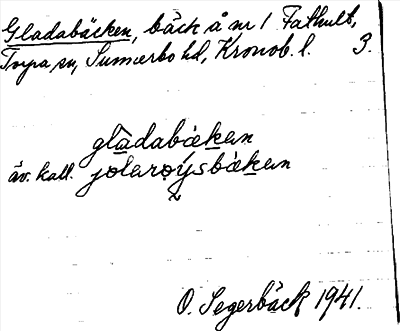 Gladabäcken, bäck å nr 1 Fathult,
Torpa sn, Sunnerbo hd, Kronob. l. 3.
gladabäkan
äv. kall. jølarøysbäkan
O. Segerbäck 1941.